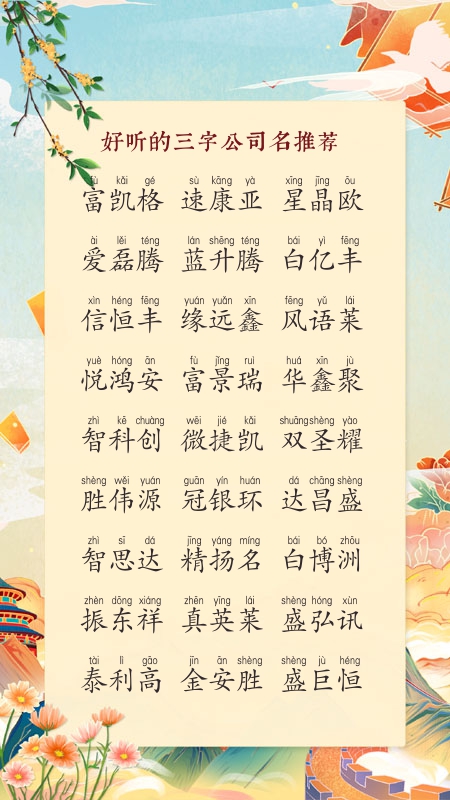 好听的三字公司名推荐
fù kǎi gé sù kāng yà xīng jīng ōu
富凯格 速康亚 星晶欧
ài lěi téng lán shēng téng bái yì fēng
爱磊腾 蓝升腾 白亿丰
xìn héng fēng yuán yuǎn xīn fēng yǔ lái
信恒丰 缘远鑫 风语莱
yuè hóng ān fù jǐng ruì huá xīn jù
悦鸿安 富景瑞 华鑫聚
zhì kē chuàng wēi jié kǎi shuāng shèng yào
智科创 微捷凯 双圣耀
shèng wěi yuán guān yín huán dá chāng shèng
胜伟源 冠银环 达昌盛
zhì sī dá jīng yáng míng bái bó zhōu
智思达 精扬名 白博洲
zhèn dōng xiáng zhēn yīng lái shèng hóng xùn
振东祥 真英莱 盛弘讯
tài lì gāo jīn ān shèng shèng jù héng
泰利高 金安胜 盛巨恒